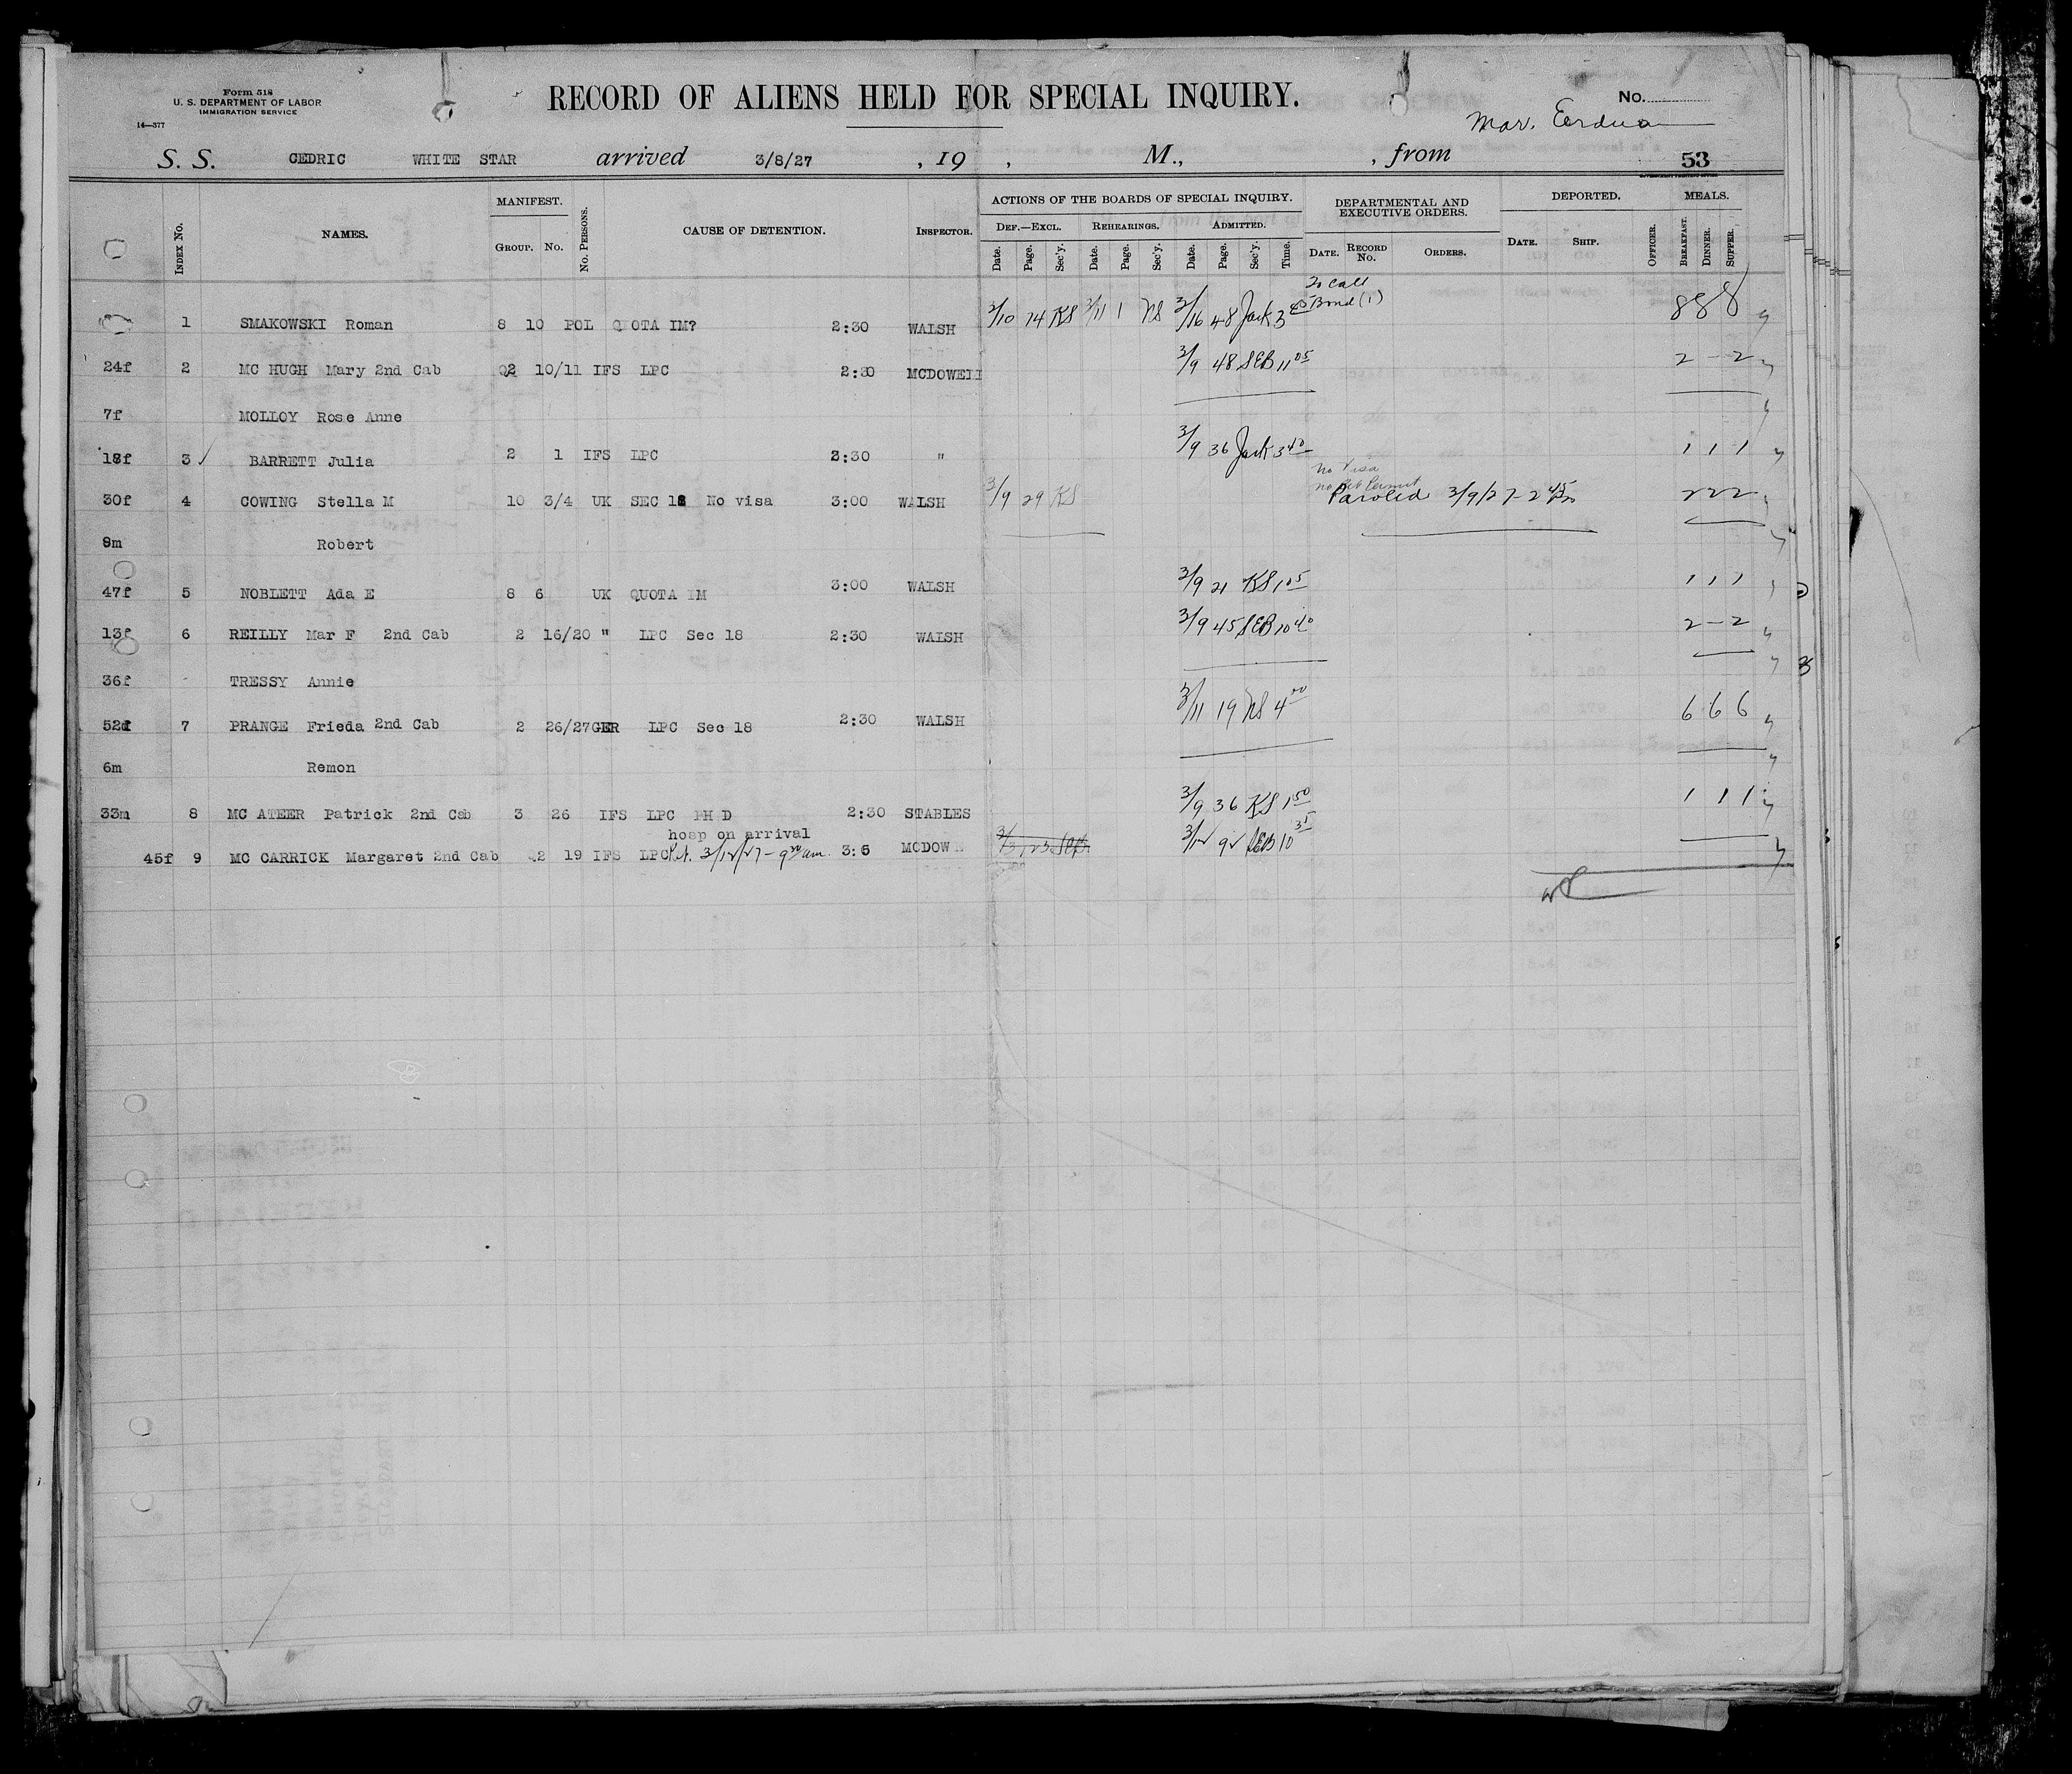 Form 518
U. S. DEPARTMENT OF LABOR
IMMIGRATION SERVICE
14—377
RECORD OF ALIENS HELD FOR SPECIAL INQUIRY.
No.
Mar.
S. S. CEDRIC WHITE STAR arrived 3/8/27 , 19 , M., , from 53
INDEX No. NAMES. MANIFEST. GROUP. No. No. PERSONS. CAUSE OF DETENTION. INSPECTOR. ACTIONS OF THE BOARDS OF SPECIAL INQUIRY. DEF.—EXCL. Date. Page. Sec'y. REHEARINGS. Date. Page. Sec'y. ADMITTED. Date. Page. Sec'y. Time. DEPARTMENTAL AND EXECUTIVE ORDERS. DATE. RECORD No. ORDERS. DEPORTED. DATE. SHIP. OFFICER. MEALS. BREAKFAST. DINNER. SUPPER.
To Call
1 SMAKOWSKI Roman 8 10 POL QUOTA IM? 2:30 WALSH 3/10 14 KS 3/11 1 NS 3/16 48 Jack 3 Bond (1) 8 8 8
24f 2 MC HUGH Mary 2nd Cab Q2 10/11 IFS LPC 2:30 MCDOWELL 3/9 48 SEB 11 05 2 - 2
7f MOLLOY Rose Anne
18f 3 ✓ BARRETT Julia 2 1 IFS LPC 2:30 " 3/9 36 Jack 3 40 1 1 1
no Visa
30f 4 COWING Stella M 10 3/4 UK SEC 18 No visa 3:00 WALSH 3/9 29 KS Paroled 3/9/27 - 2 45 2 2 2
9m Robert
47f 5 NOBLETT Ada E 8 6 UK QUOTA IM 3:00 WALSH 3/9 21 KS 1 05 1 1 1
13f 6 REILLY Mar F 2nd Cab 2 16/20 " LPC Sec 18 2:30 WALSH 3/9 45 SEB 10 40 2 - 2
36f TRESSY Annie
52f 7 PRANGE Frieda 2nd Cab 2 26/27 GER LPC Sec 18 2:30 WALSH 3/11 19 NS 4 00 6 6 6
6m Remon
33m 8 MC ATEER Patrick 2nd Cab 3 26 IFS LPC PH D 2:30 STABLES 3/9 36 KS 1 50 1 1 1
hosp on arrival
45f 9 MC CARRICK Margaret 2nd Cab Q2 19 IFS LPC 3/12/27 - 9 am. 3:5 MCDOW 3/12 92 SEB 10 35